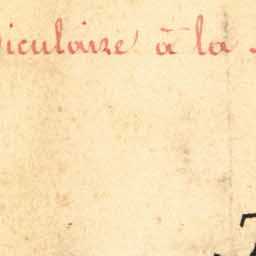 iculaire à la